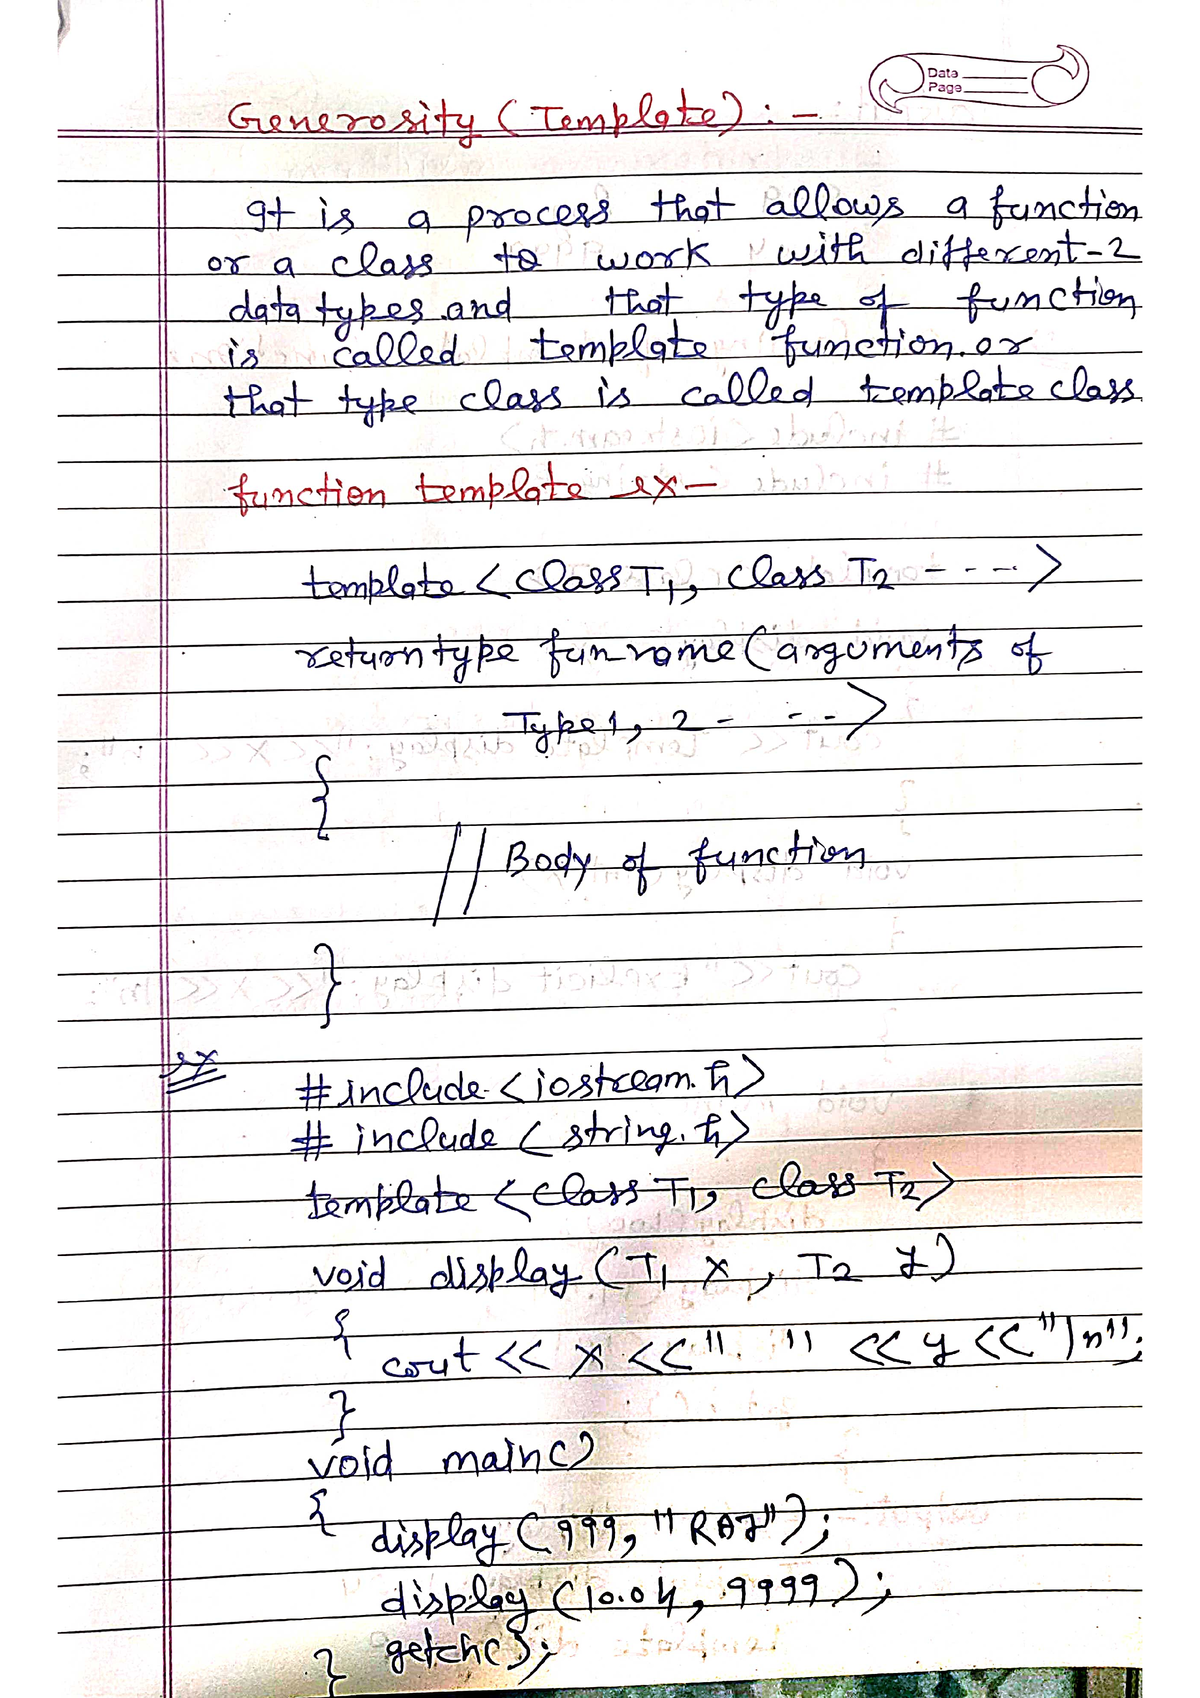 Data
Page
Generosity (Template) : -
It is a process that allows a function
or a class to work with different-2
data types and that type of function
is called template function. or
that type class is called template class
function template ex -
template < class T1, class T2 - - - - >
return type fun name (arguments of
Type 1, 2 - - - - >
{
// Body of function
}
ex
# include <iostream.h>
# include < string.h>
template < class T1, class T2 >
void display (T1 x, T2 y)
{
cout << x << " " << y << "\n";
}
void main()
{
display (999, "RAJ");
display (10.04, 9999);
getch();
}